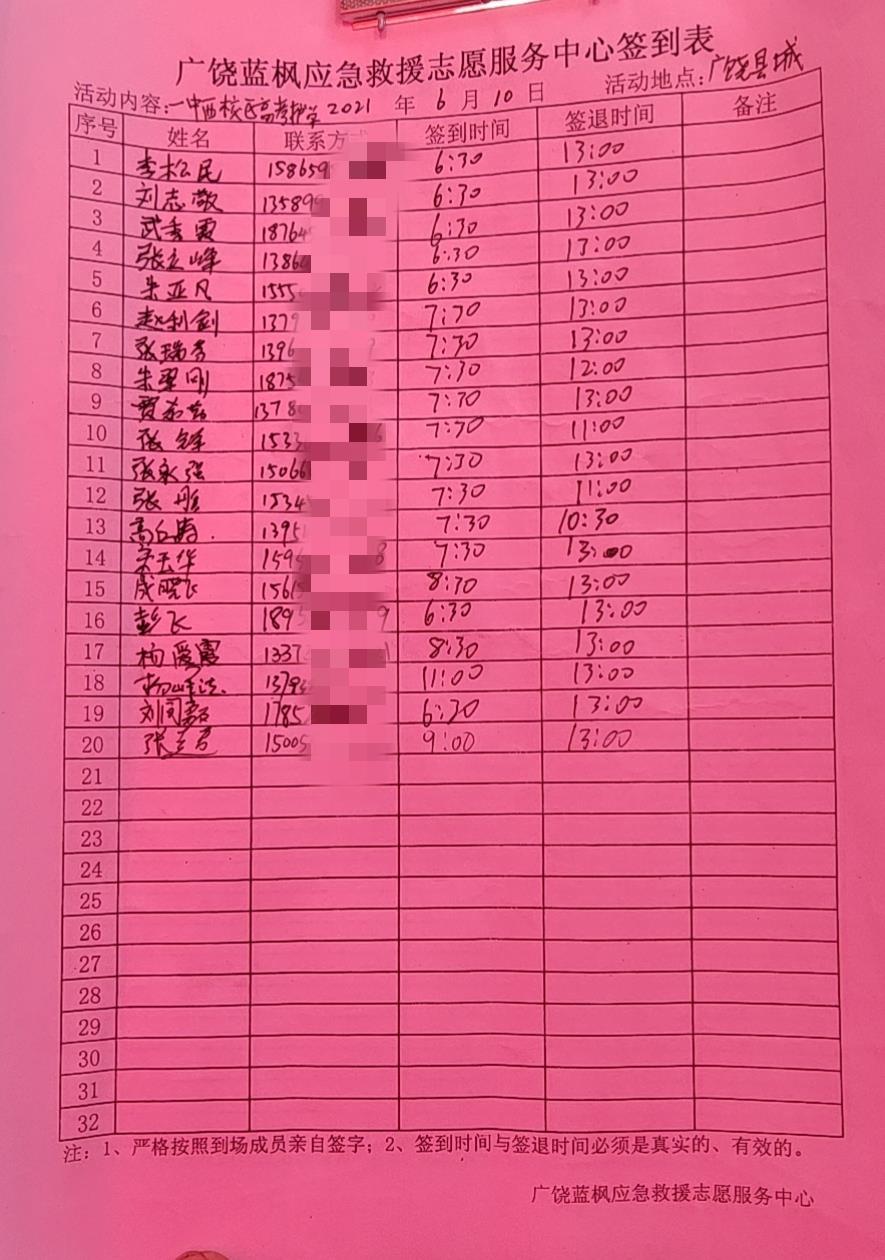 广饶蓝枫应急救援志愿服务中心签到表
活动内容:一中西校区高考护学 2021 年 6 月 10 日 活动地点:广饶县城
序号 姓名 联系方式 签到时间 签退时间 备注
1 李松民 158659 6:30 13:00
2 刘志敬 135899 6:30 13:00
3 武秀霞 18764 6:30 13:00
4 张立峰 1386 6:30 13:00
5 朱亚凡 1555 6:30 13:00
6 赵利剑 1379 7:30 13:00
7 张瑞芳 1396 7:30 13:00
8 朱翠刚 1875 7:30 12:00
9 1378 7:30 13:00
10 张锋 1533 6 7:30 11:00
11 张永强 15066 7:30 13:00
12 张彤 15345 7:30 11:00
13 1395 7:30 10:30
14 宋玉华 1595 8 7:30 13:00
15 成晓飞 1561 8:30 13:00
16 彭飞 1895 9 6:30 13:00
17 1337 1 8:30 13:00
18 1379 11:00 13:00
19 1785 6:30 13:00
20 15005 9:00 13:00
21
22
23
24
25
26
27
28
29
30
31
32
注:1、严格按照到场成员亲自签字;2、签到时间与签退时间必须是真实的、有效的。
广饶蓝枫应急救援志愿服务中心